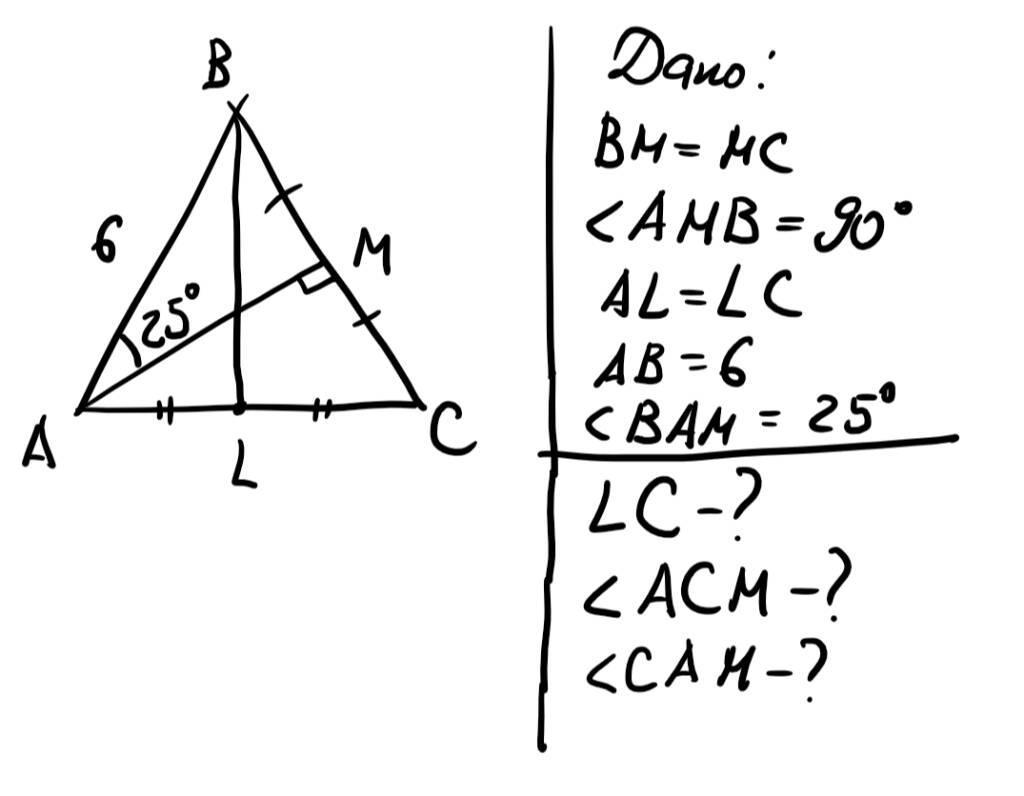 B
6
M
25°
A
L
C
Дано:
BM = MC
<AMB = 90°
AL = LC
AB = 6
<BAM = 25°
LC -?
<ACM -?
<CAM -?